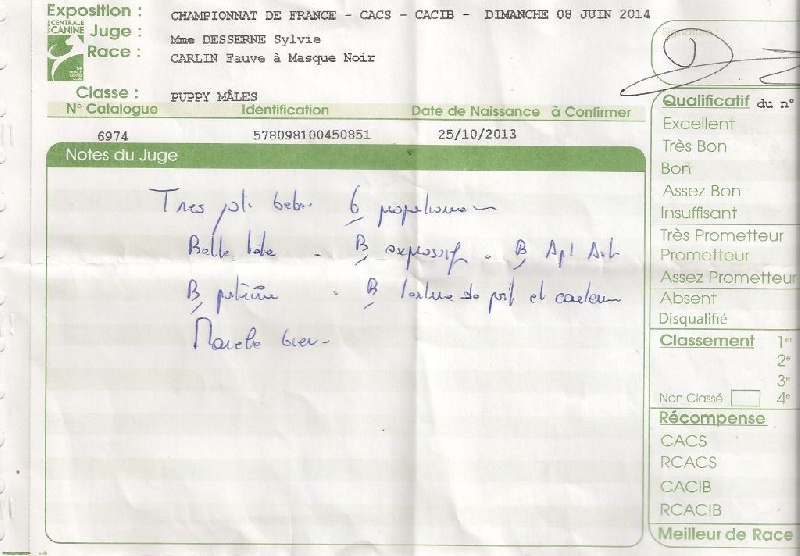 Exposition : CHAMPIONNAT DE FRANCE - CACS - CACIB - DIMANCHE 08 JUIN 2014
CENTRALE CANINE
Juge : Mme DESSERNE Sylvie
Race : CARLIN Fauve à Masque Noir
Classe : PUPPY MÂLES
N° Catalogue Identification Date de Naissance à Confirmer
6974 578098100450851 25/10/2013
Notes du Juge
Tres joli bebe
Belle tete - B expressif - B
B poitrine - B texture de poil et couleur
Marche bien -
Qualificatif du n°
Excellent
Très Bon
Bon
Assez Bon
Insuffisant
Très Prometteur
Prometteur
Assez Prometteur
Absent
Disqualifié
Classement 1er
2e
3e
Non Classé 4e
Récompense
CACS
RCACS
CACIB
RCACIB
Meilleur de Race